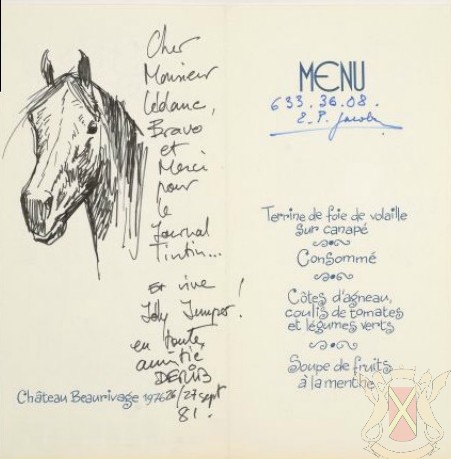 Cher
Monsieur
Leblanc,
Bravo
et
Merci
pour
le
Journal
Tintin...
Et vive
Jolly Jumper !
en toute
amitié
DERIB
26/27 sept
81.
Château Beaurivage 1976
MENU
633.36.08.
E.P. Jacobs
Terrine de foie de volaille
sur canapé
Consommé
Côtes d'agneau,
coulis de tomates
et légumes verts
Soupe de fruits
à la menthe